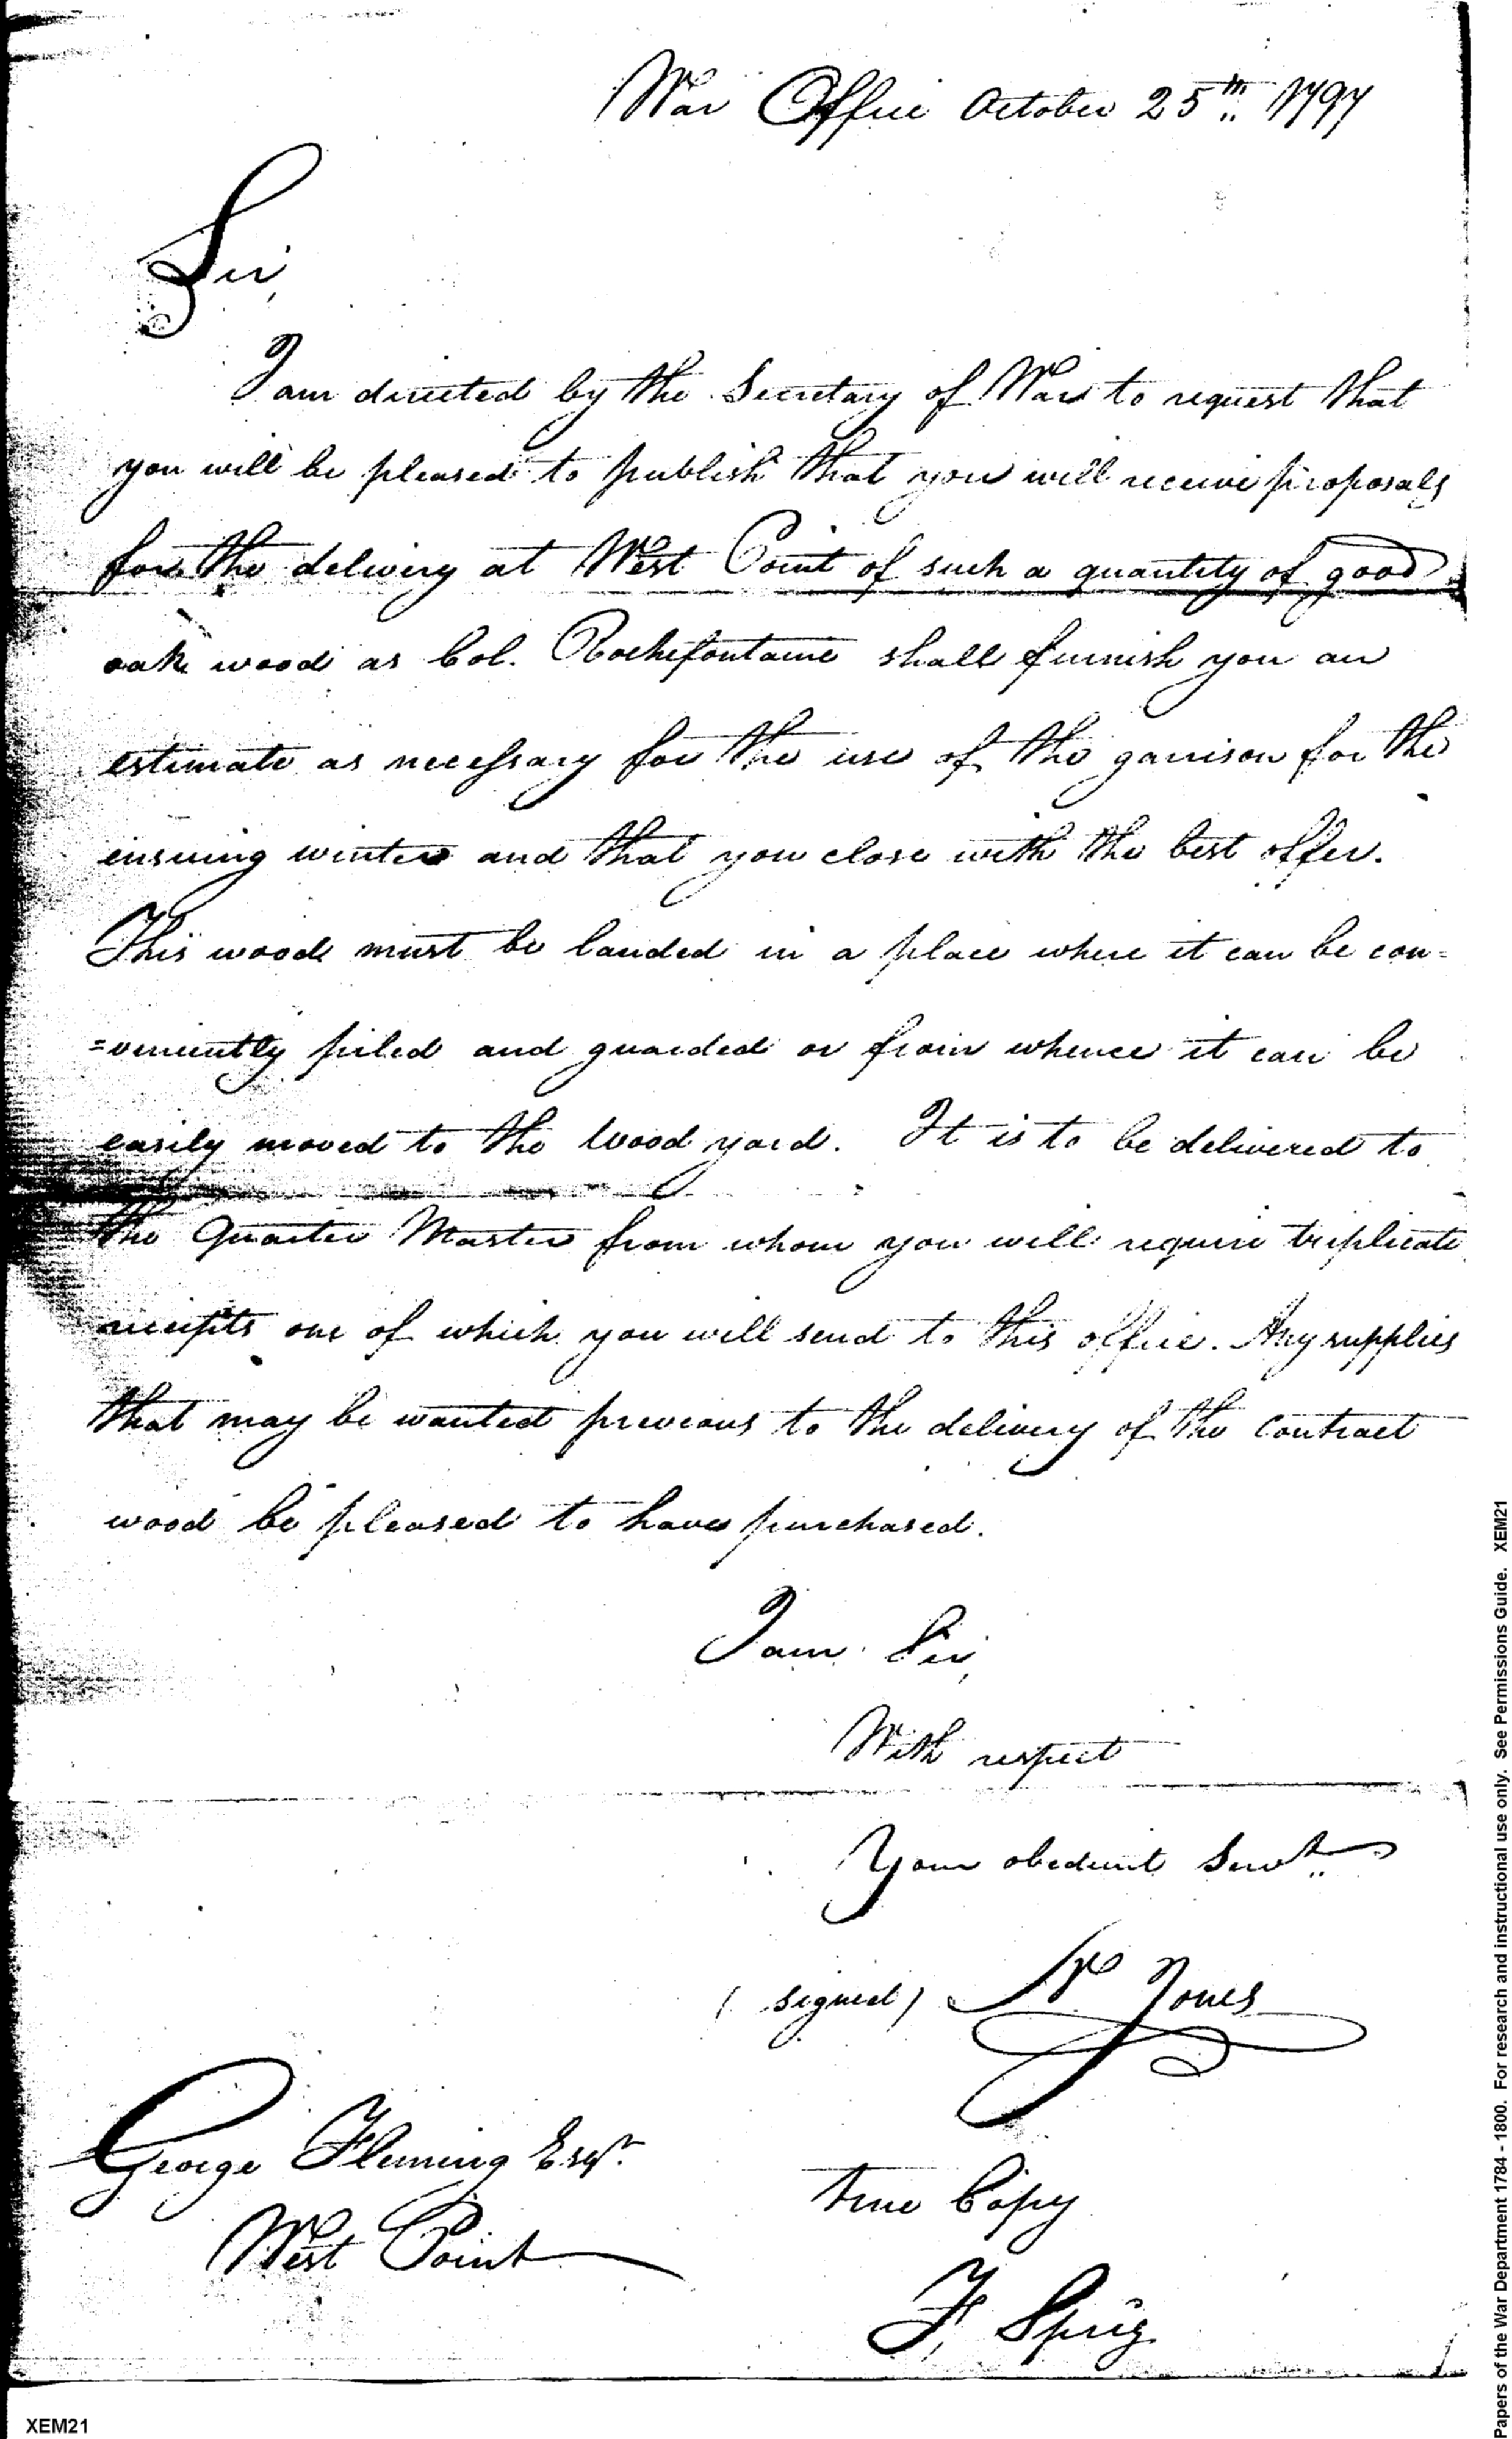 War Office October 25th 1797
Sir,
I am directed by the Secretary of War to request that
you will be pleased to publish that you will receive proposals
for the delivery at West Point of such a quantity of good
oak wood as Col. Rochefontaine shall furnish you an
estimate as necessary for the use of the garrison for the
ensuing winter and that you close with the best offer.
This wood must be landed in a place where it can be con=
=veniently piled and guarded or from whence it can be
easily moved to the wood yard. It is to be delivered to
the Quarter Master from whom you will require triplicate
receipts one of which you will send to this office. Any supplies
that may be wanted previous to the delivery of the contract
wood be pleased to have purchased.
I am Sir,
With respect
Your obedient Servt
(signed) Nn Jones
George Fleming Esqr.
West Point
True Copy
F, Sprig
XEM21
Papers of the War Department 1784 - 1800. For research and instructional use only. See Permissions Guide. XEM21